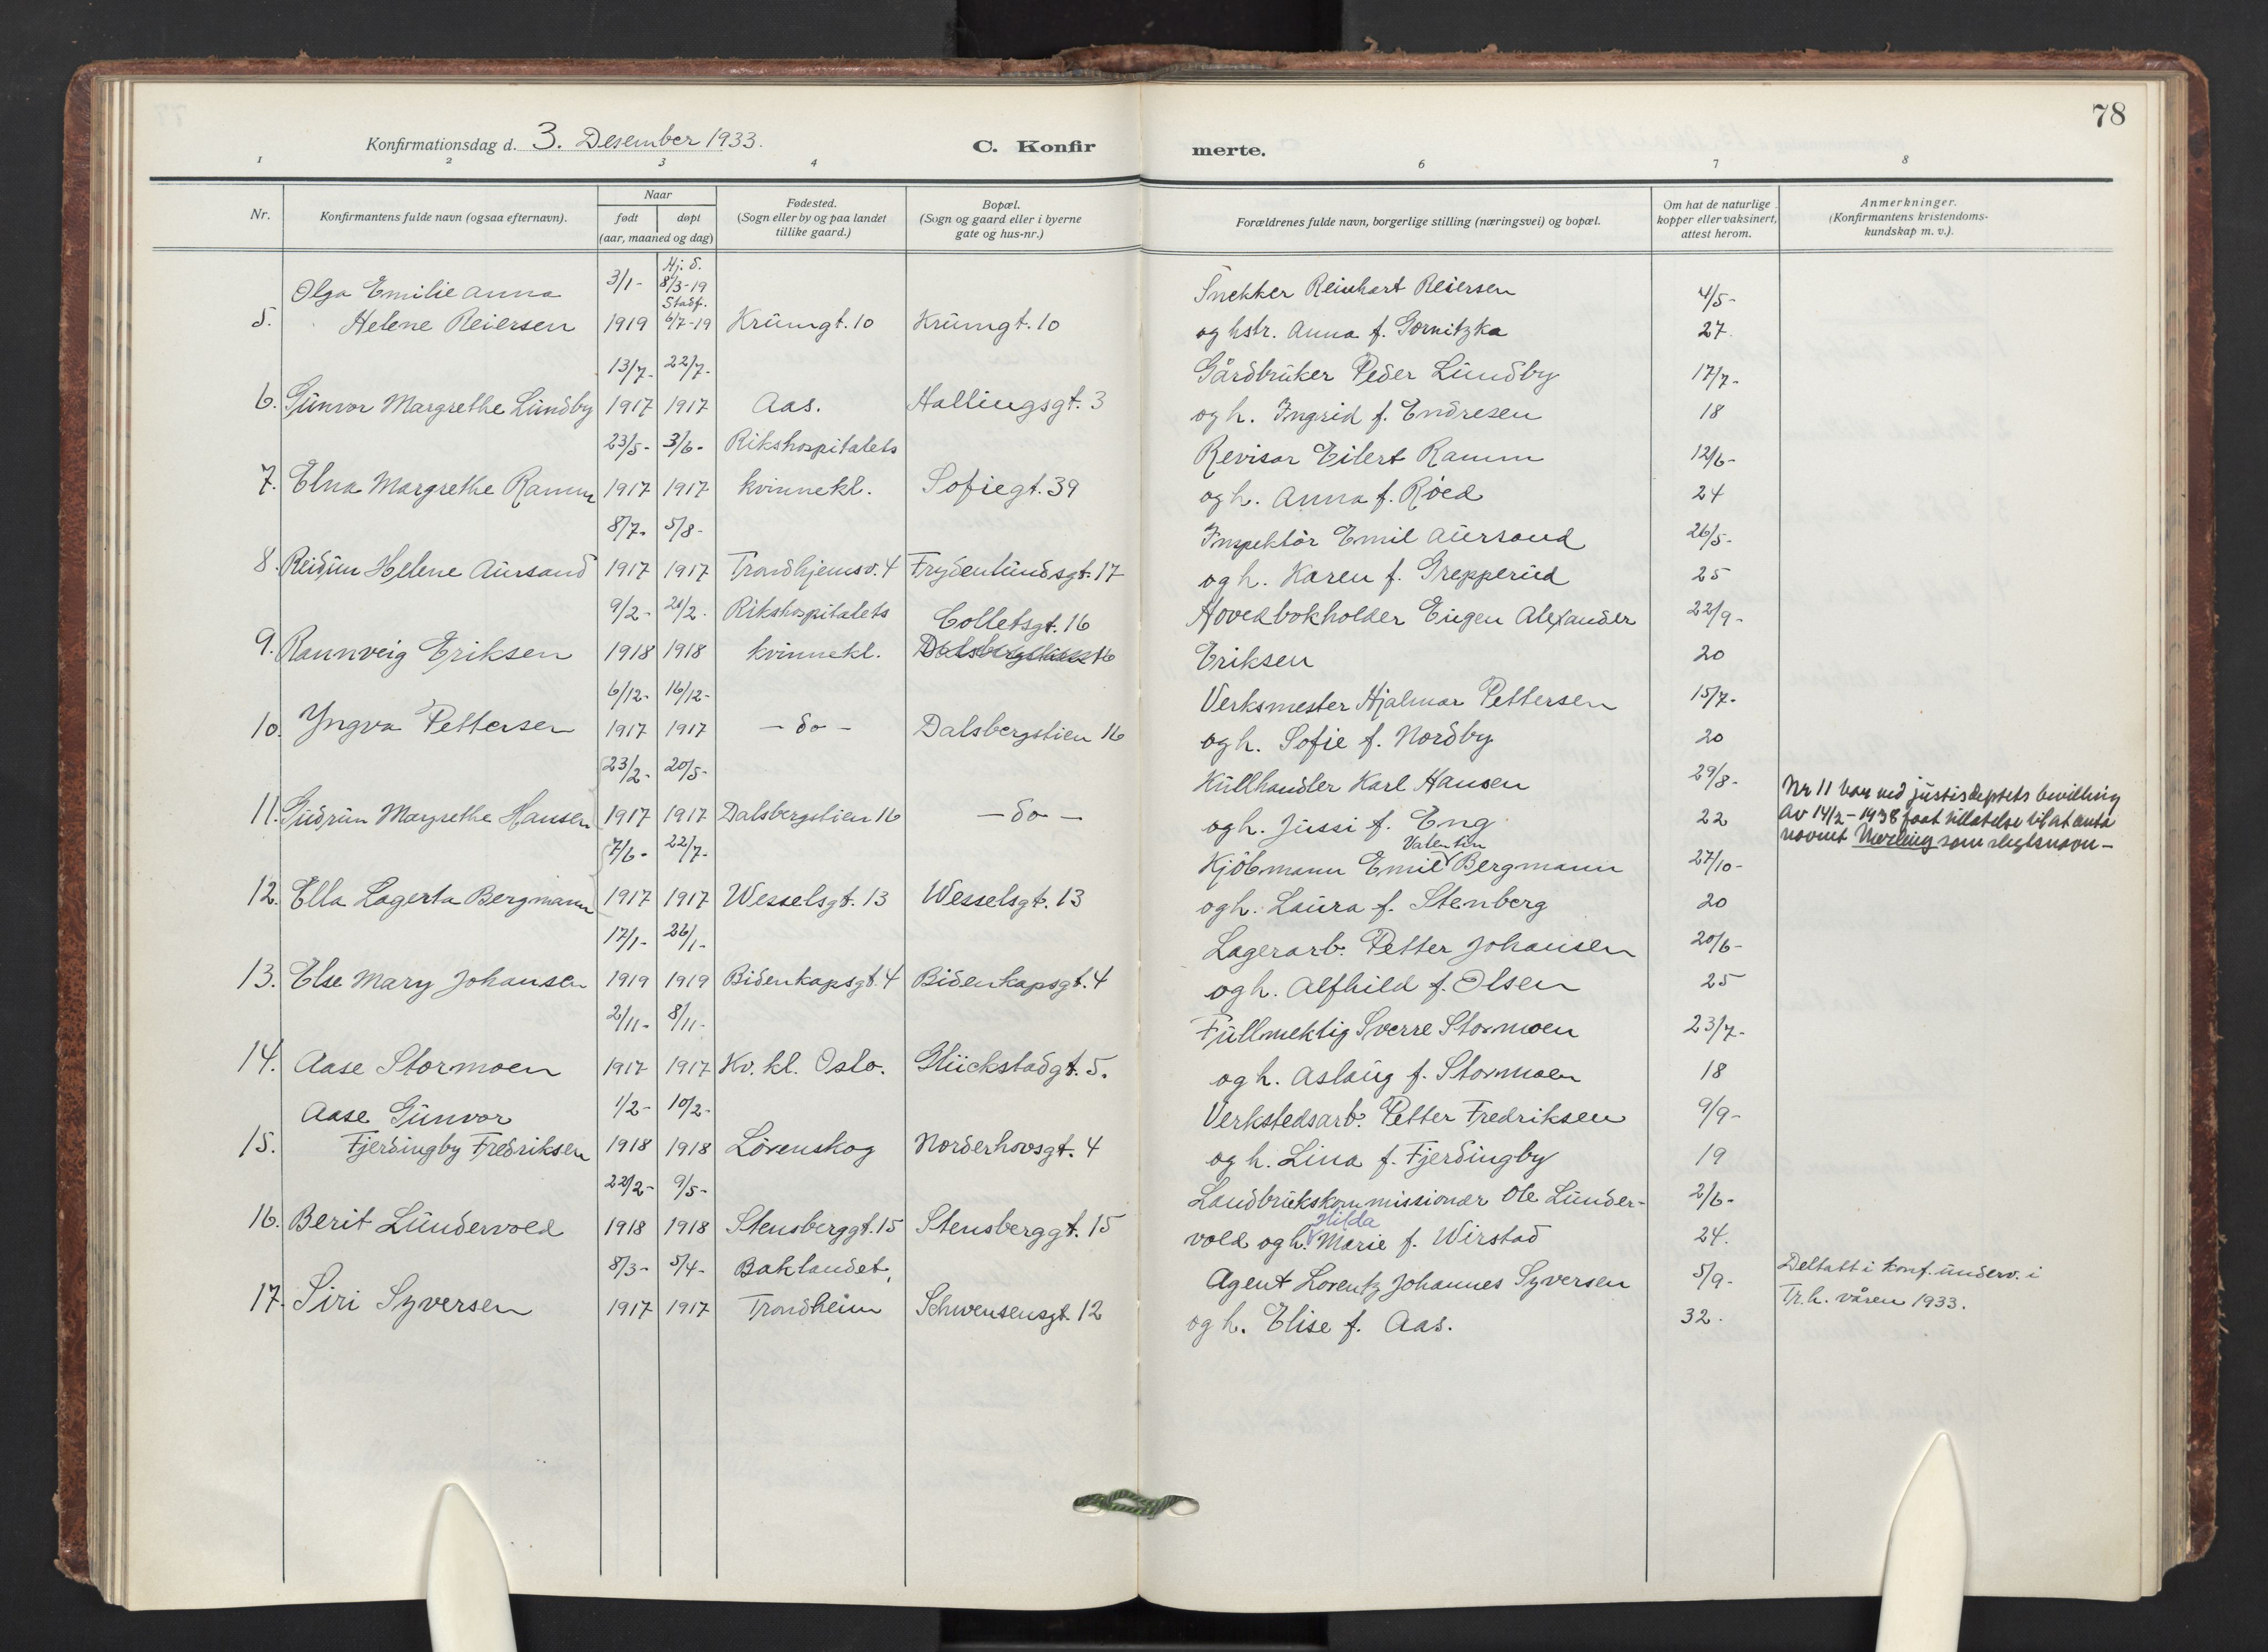 78
Konfirmationsdag d. 3. Desember 1933. C. Konfirmerte.
1 2 3 4 6 7 8
Nr. Konfirmantens fulde navn (ogsaa efternavn). Naar født døpt (aar, maaned og dag) Fødested. (Sogn eller by og paa landet tillike gaard.) Bopæl. (Sogn og gaard eller i byerne gate og hus-nr.) Forældrenes fulde navn, borgerlige stilling (næringsvei) og bopæl. Om hat de naturlige kopper eller vaksinert, attest herom. Anmerkninger. (Konfirmantens kristendoms-kundskap m. v.).
Olga Emilie Anna 3/1- Hj. d. 8/3-19 Stadf. Snekker Reinhart Reiersen 4/5-
5. Helene Reiersen 1919 6/7-19 Krumgt. 10 Krumgt. 10 og hstr. Anna f. Gornitzka 27.
13/7- 22/7- Gårdbruker Peder Lundby 17/7-
6. Gunvor Margrethe Lundby 1917 1917 Aas. Hallingsgt. 3 og h. Ingrid f. Endresen 18
23/5- 3/6- Rikshospitalets Revisor Eilert Ramm 12/6-
7. Elna Margrethe Ramm 1917 1917 kvinnekl. Sofiegt. 39 og h. Anna f. Röed 24
8/7- 5/8- Inspektör Emil Aursand 26/5-
8. Reidun Helene Aursand 1917 1917 Trondhjemsv. 4 Frydenlundsgt. 17 og h. Karen f. Grepperud 25
9/2- 21/2- Rikshospitalets Colletsgt. 16 Hovedbokholder Eugen Alexander 22/9-
9. Rannveig Eriksen 1918 1918 kvinnekl. Dalsbergstien 16 Eriksen 20
6/12- 16/12- Verksmester Hjalmar Pettersen 15/7-
10. Yngva Pettersen 1917 1917 - do - Dalsbergstien 16 og h. Sofie f. Nordby 20
23/2- 20/5- Kullhandler Karl Hansen 29/8- Nr 11 har ved justisdeptets bevilling
11. Gudrun Margrethe Hansen 1917 1917 Dalsbergstien 16 - do - og h. Jussi f. Eng 22 av 14/2-1938 faat tillatelse til at anta
navnet som slegtsnavn -
7/6- 22/7- Kjöbmann Emil Valentin Bergmann 27/10-
12. Ella Lagerta Bergmann 1917 1917 Wesselsgt. 13 Wesselsgt. 13 og h. Laura f. Stenberg 20
17/1- 26/1- Lagerarb. Petter Johansen 20/6-
13. Else Mary Johansen 1919 1919 Bidenkapsgt. 4 Bidenkapsgt. 4 og h. Alfhild f. Olsen 25
2/11- 8/11- Fullmektig Sverre Stormoen 23/7-
14. Aase Stormoen 1917 1917 Kv. kl. Oslo. Glückstadgt. 5. og h. Aslaug f. Stormoen 18
Aase Gunvor 1/2- 10/2- Verkstedsarb. Petter Fredriksen 9/9-
15. Fjerdingby Fredriksen 1918 1918 Lörenskog Norderhovsgt. 4 og h. Lina f. Fjerdingby 19
22/2- 9/5- Landbrukskommissionær Ole Lunder- 2/6-
16. Berit Lundervold 1918 1918 Stensberggt. 15 Stensberggt. 15 vold og h. Hilda Marie f. Wirstad 24.
8/3- 5/4- Baklandet, Agent Lorentz Johannes Syversen 5/9- Deltatt i konf. underv. i
17. Siri Syversen 1917 1917 Trondheim Schwensensgt. 12 og h. Elise f. Aas. 32. Tr.h. våren 1933.